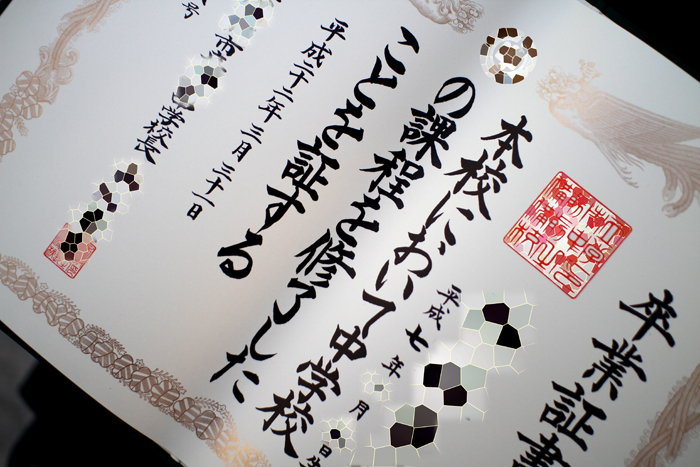 卒業証書
平成七年 月 日生
本校において中学校
の課程を修了した
ことを証する
平成二十二年三月三十一日
市 学校長
号